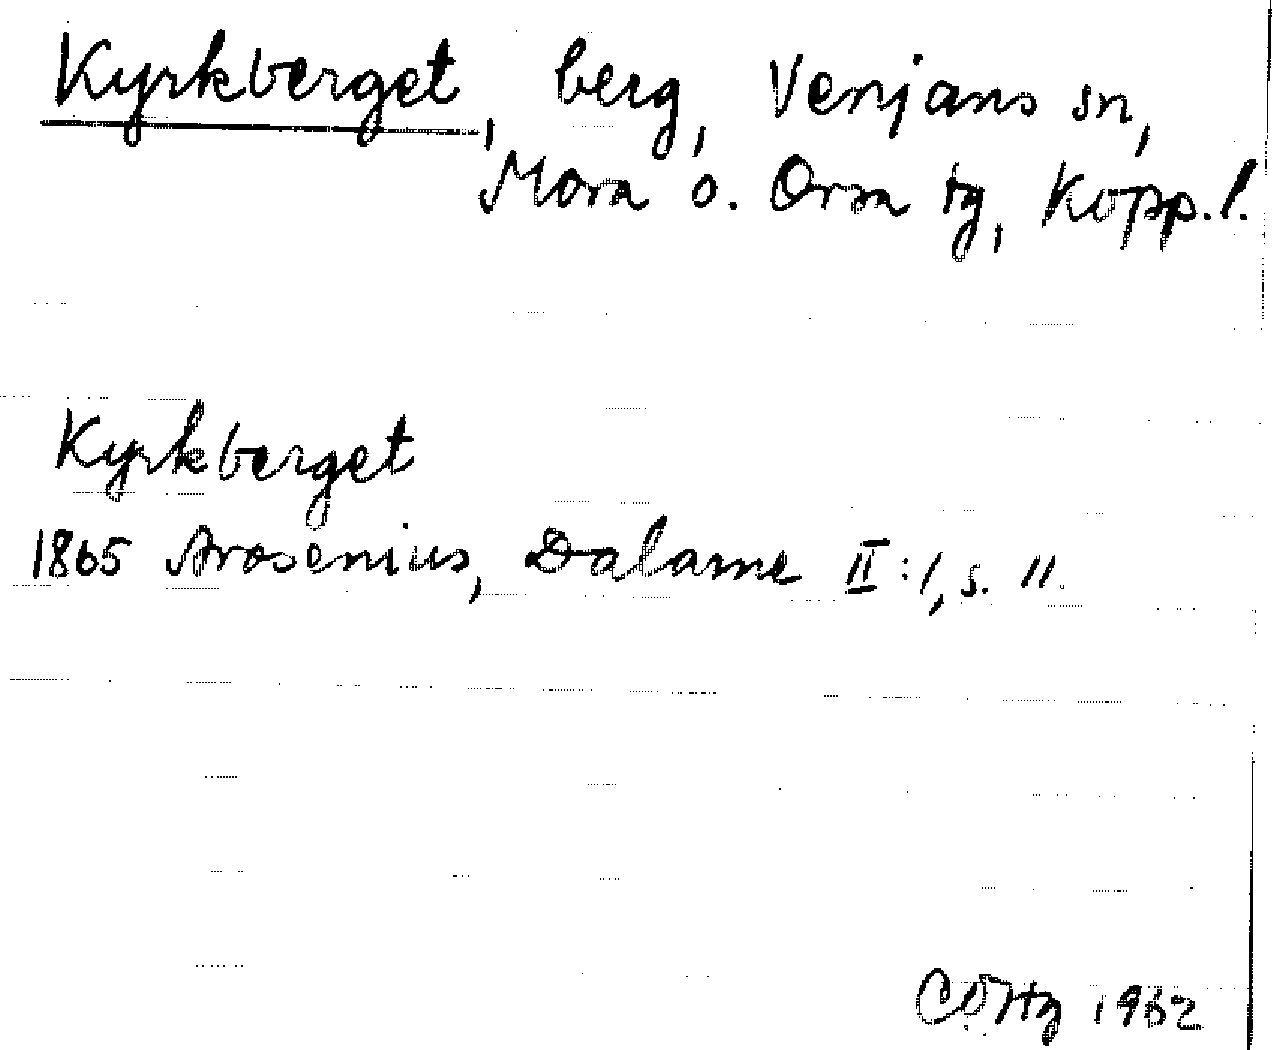 Kyrkberget, berg, Venjans sn,
Mora o. Orsa tg, Kopp.l.
Kyrkberget
1865 Arosenius, Dalarne II:1, s. 11.
1962